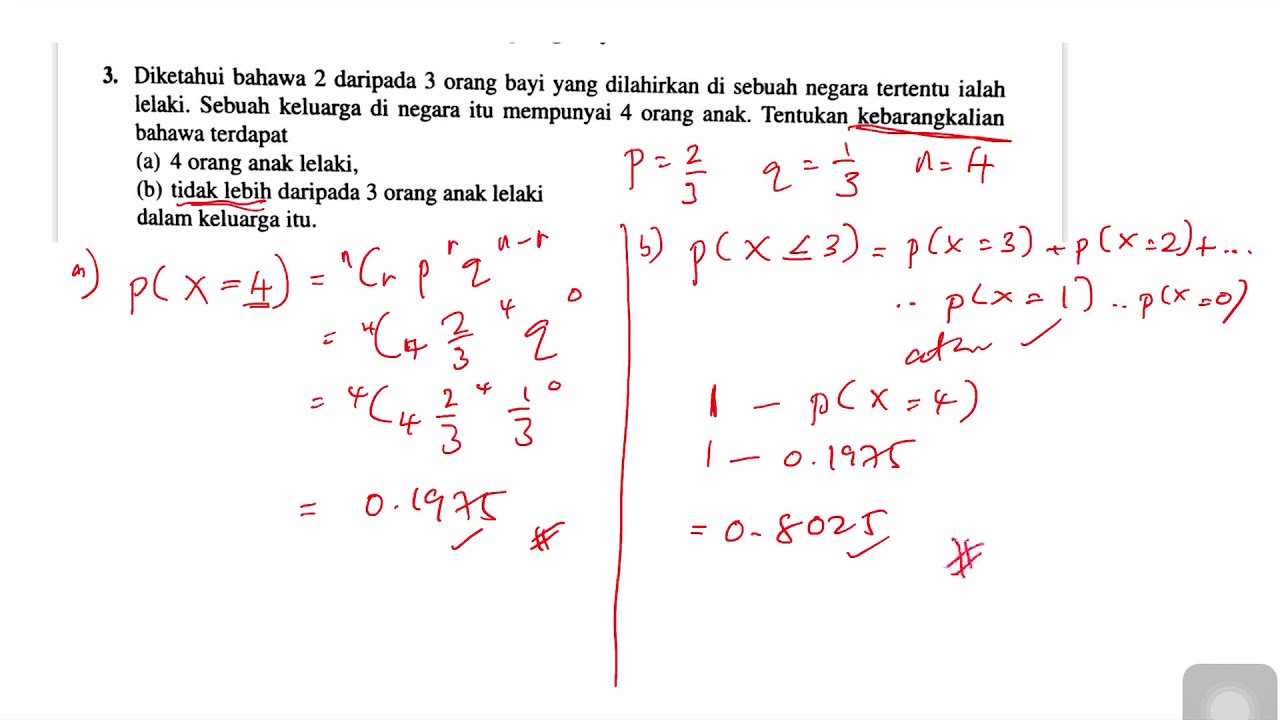 3. Diketahui bahawa 2 daripada 3 orang bayi yang dilahirkan di sebuah negara tertentu ialah
lelaki. Sebuah keluarga di negara itu mempunyai 4 orang anak. Tentukan kebarangkalian
bahawa terdapat
(a) 4 orang anak lelaki,
(b) tidak lebih daripada 3 orang anak lelaki
dalam keluarga itu.
P = 2/3 q = 1/3 n = 4
a) P(X = 4) = ⁿCr p^r q^(n-r)
= ⁴C₄ 2/3 ⁴ q ⁰
= ⁴C₄ 2/3 ⁴ 1/3 ⁰
= 0.1975 #
b) P(X ≤ 3) = P(X = 3) + P(X = 2) + ...
.. P(X = 1) .. P(X = 0)
atau
1 - P(X = 4)
1 - 0.1975
= 0.8025 #